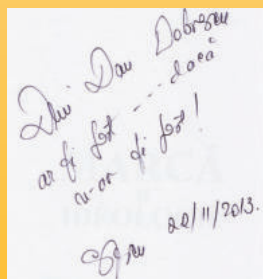 Dlui Dan Dobrescu
ar fi fost .... dacă
n-ar fi fost!
20/11/2013.